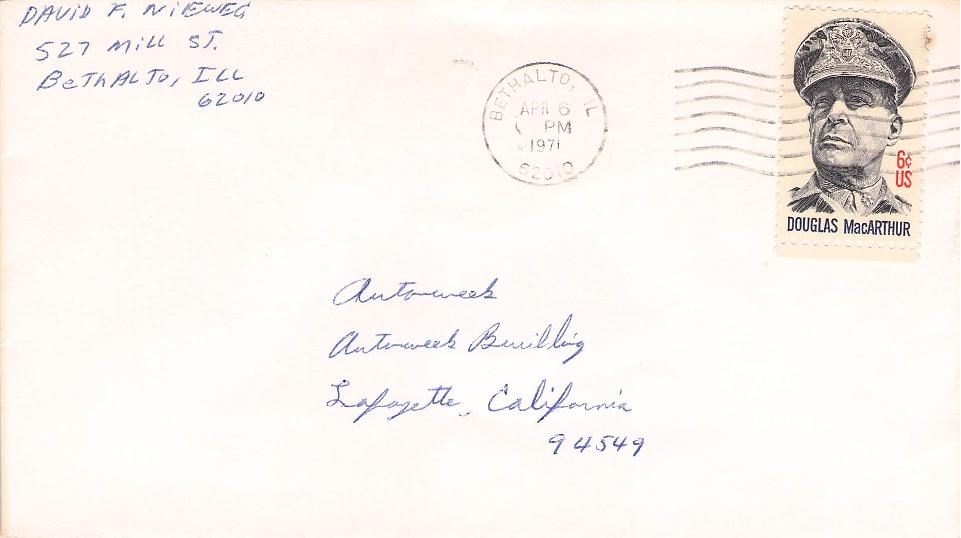 DAVID F. NIEWEG
527 Mill ST.
BeThALTo, ILL
62010
BETHALTO, IL
APR 6
PM
1971
62010
6¢
US
DOUGLAS MacARTHUR
Autoweek
Autoweek Building
Lafayette, California
94549